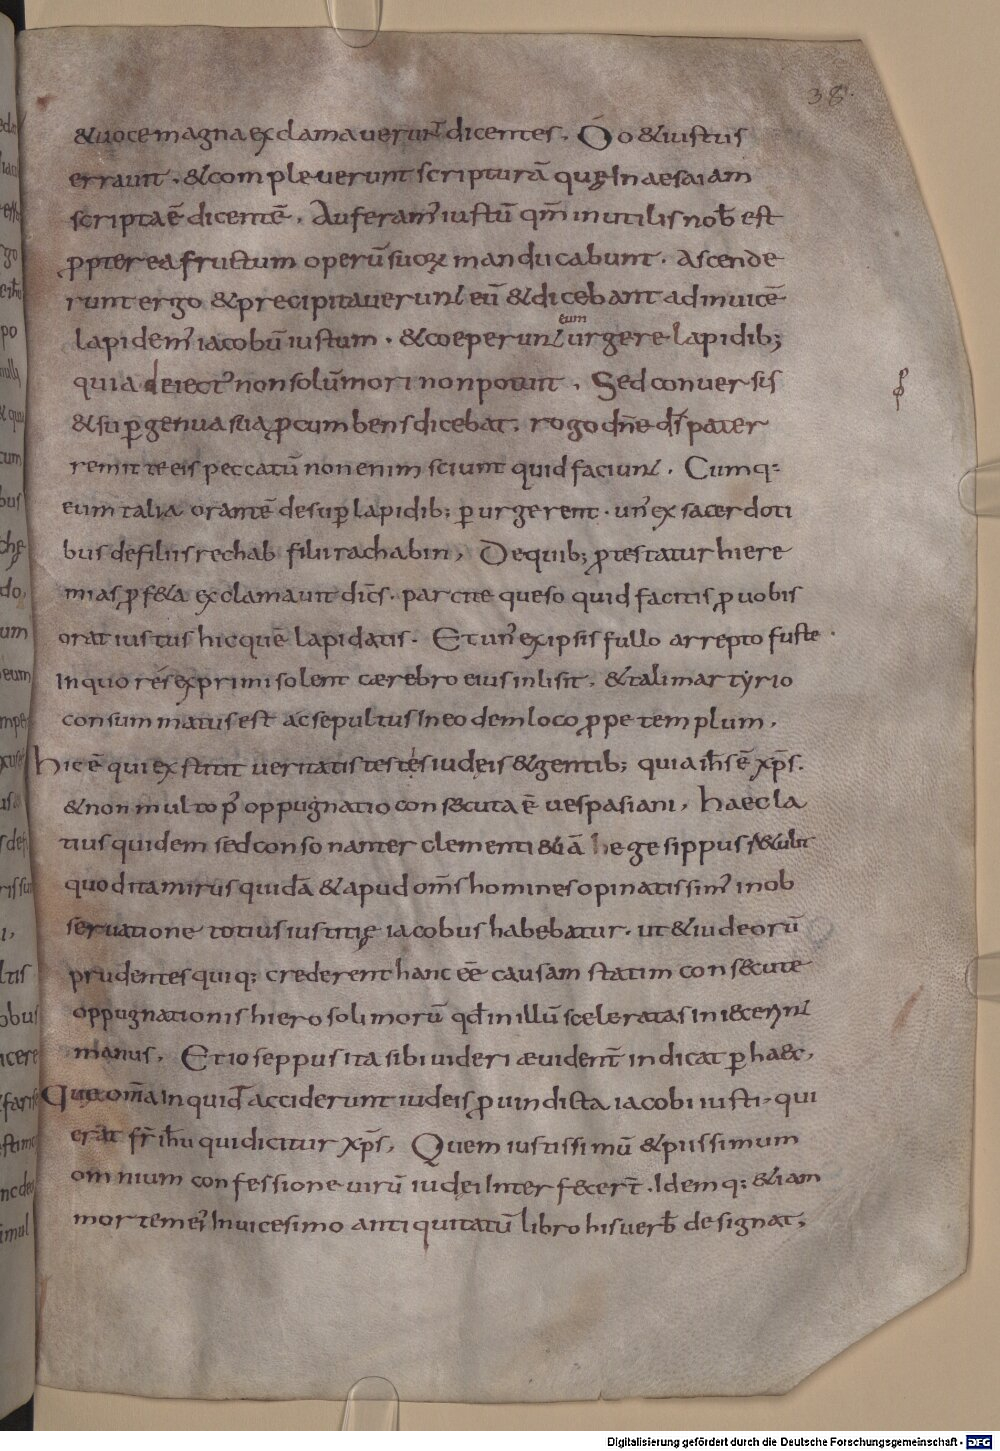 38.
&uoce magna exclamauerunt dicentes. Oo &iustus
errauit. &compleuerunt scripturā quę In aesaiam
scripta ē dicentē. Auferam' iustū qm̄ inutilis nob̄ est
ꝓpterea fructum operū suoꝝ manducabunt. Ascende
runt ergo &precipitauerunt eū &dicebant adinuicē
lapidem' iacobū iustum. &coeperunt urgere lapidib;
eum
quia deiect' non solū mori non potuit. Sed conuersis
&suꝑ genua sua ꝓcumbens dicebat. rogo dn̄e ds̄ pater
remitte eis peccatū non enim sciunt quid faciunt. Cumq:
eum talia orantē desuꝑ lapidib; ꝑurgerent. un' ex sacerdoti
bus de filiis rechab filii rachabin, De quib; ꝓtestatur hiere
mias ꝓf&a exclamauit dic̄s. parcite queso quid facitis ꝓ uobis
orat iustus hic quē lapidatis. Et un' ex ipsis fullo arrepto fuste
In quo res exprimi solent cerebro eius inlisit, &tali martyrio
consummatus est ac sepultus In eodem loco ꝓpe templum,
hic ē qui exstitit ueritatis testis iudeis &gentib; quia ih̄s ē xp̄s.
&non multo p' oppugnatio consecuta ē uespasiani, haec la
tius quidem sed consonanter clementi &iā hegesippus r&ulit
quod ita mirus quidā &apud om̄s homines opinatissim' in ob
seruatione totius iustitię iacobus habebatur. ut &iudeorū
prudentes quiq; crederent hanc eē causam statim consecute
oppugnationis hierosolimorū qd̄ in illū sceleratas iniecerint
manus, Et ioseppus ita sibi uideri æuident̄ indicat ꝑ haec,
Que om̄a inquid acciderunt iudeis ꝓ uindicta iacobi iusti, qui
erat fr̄ ih̄u qui dicitur xp̄s, Quem iustissimū &piissimum
omnium confessione uirū iudei Interfecer̄t. Idemq; &iam
mortem ei' In uicesimo antiquitatū libro his uerb̄ designat;
Digitalisierung gefördert durch die Deutsche Forschungsgemeinschaft - DFG